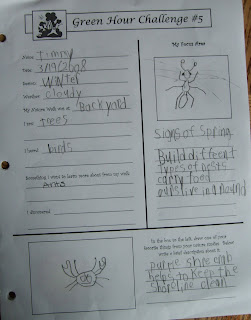 Green Hour Challenge #5
Name Timmy
Date 3/19/2008
Season Winter
Weather Cloudy
My Nature Walk was at Backyard
I saw Trees
I heard birds
Something I want to learn more about from my walk
Ants
I discovered
My Focus Area
Signs of Spring
Build different
types of nests
carry food
ants live in a mound
In the box to the left, draw one of your
favorite things from your nature studies. Below
write a brief description about it.
purple shore crab
helps to keep the
shoreline clean